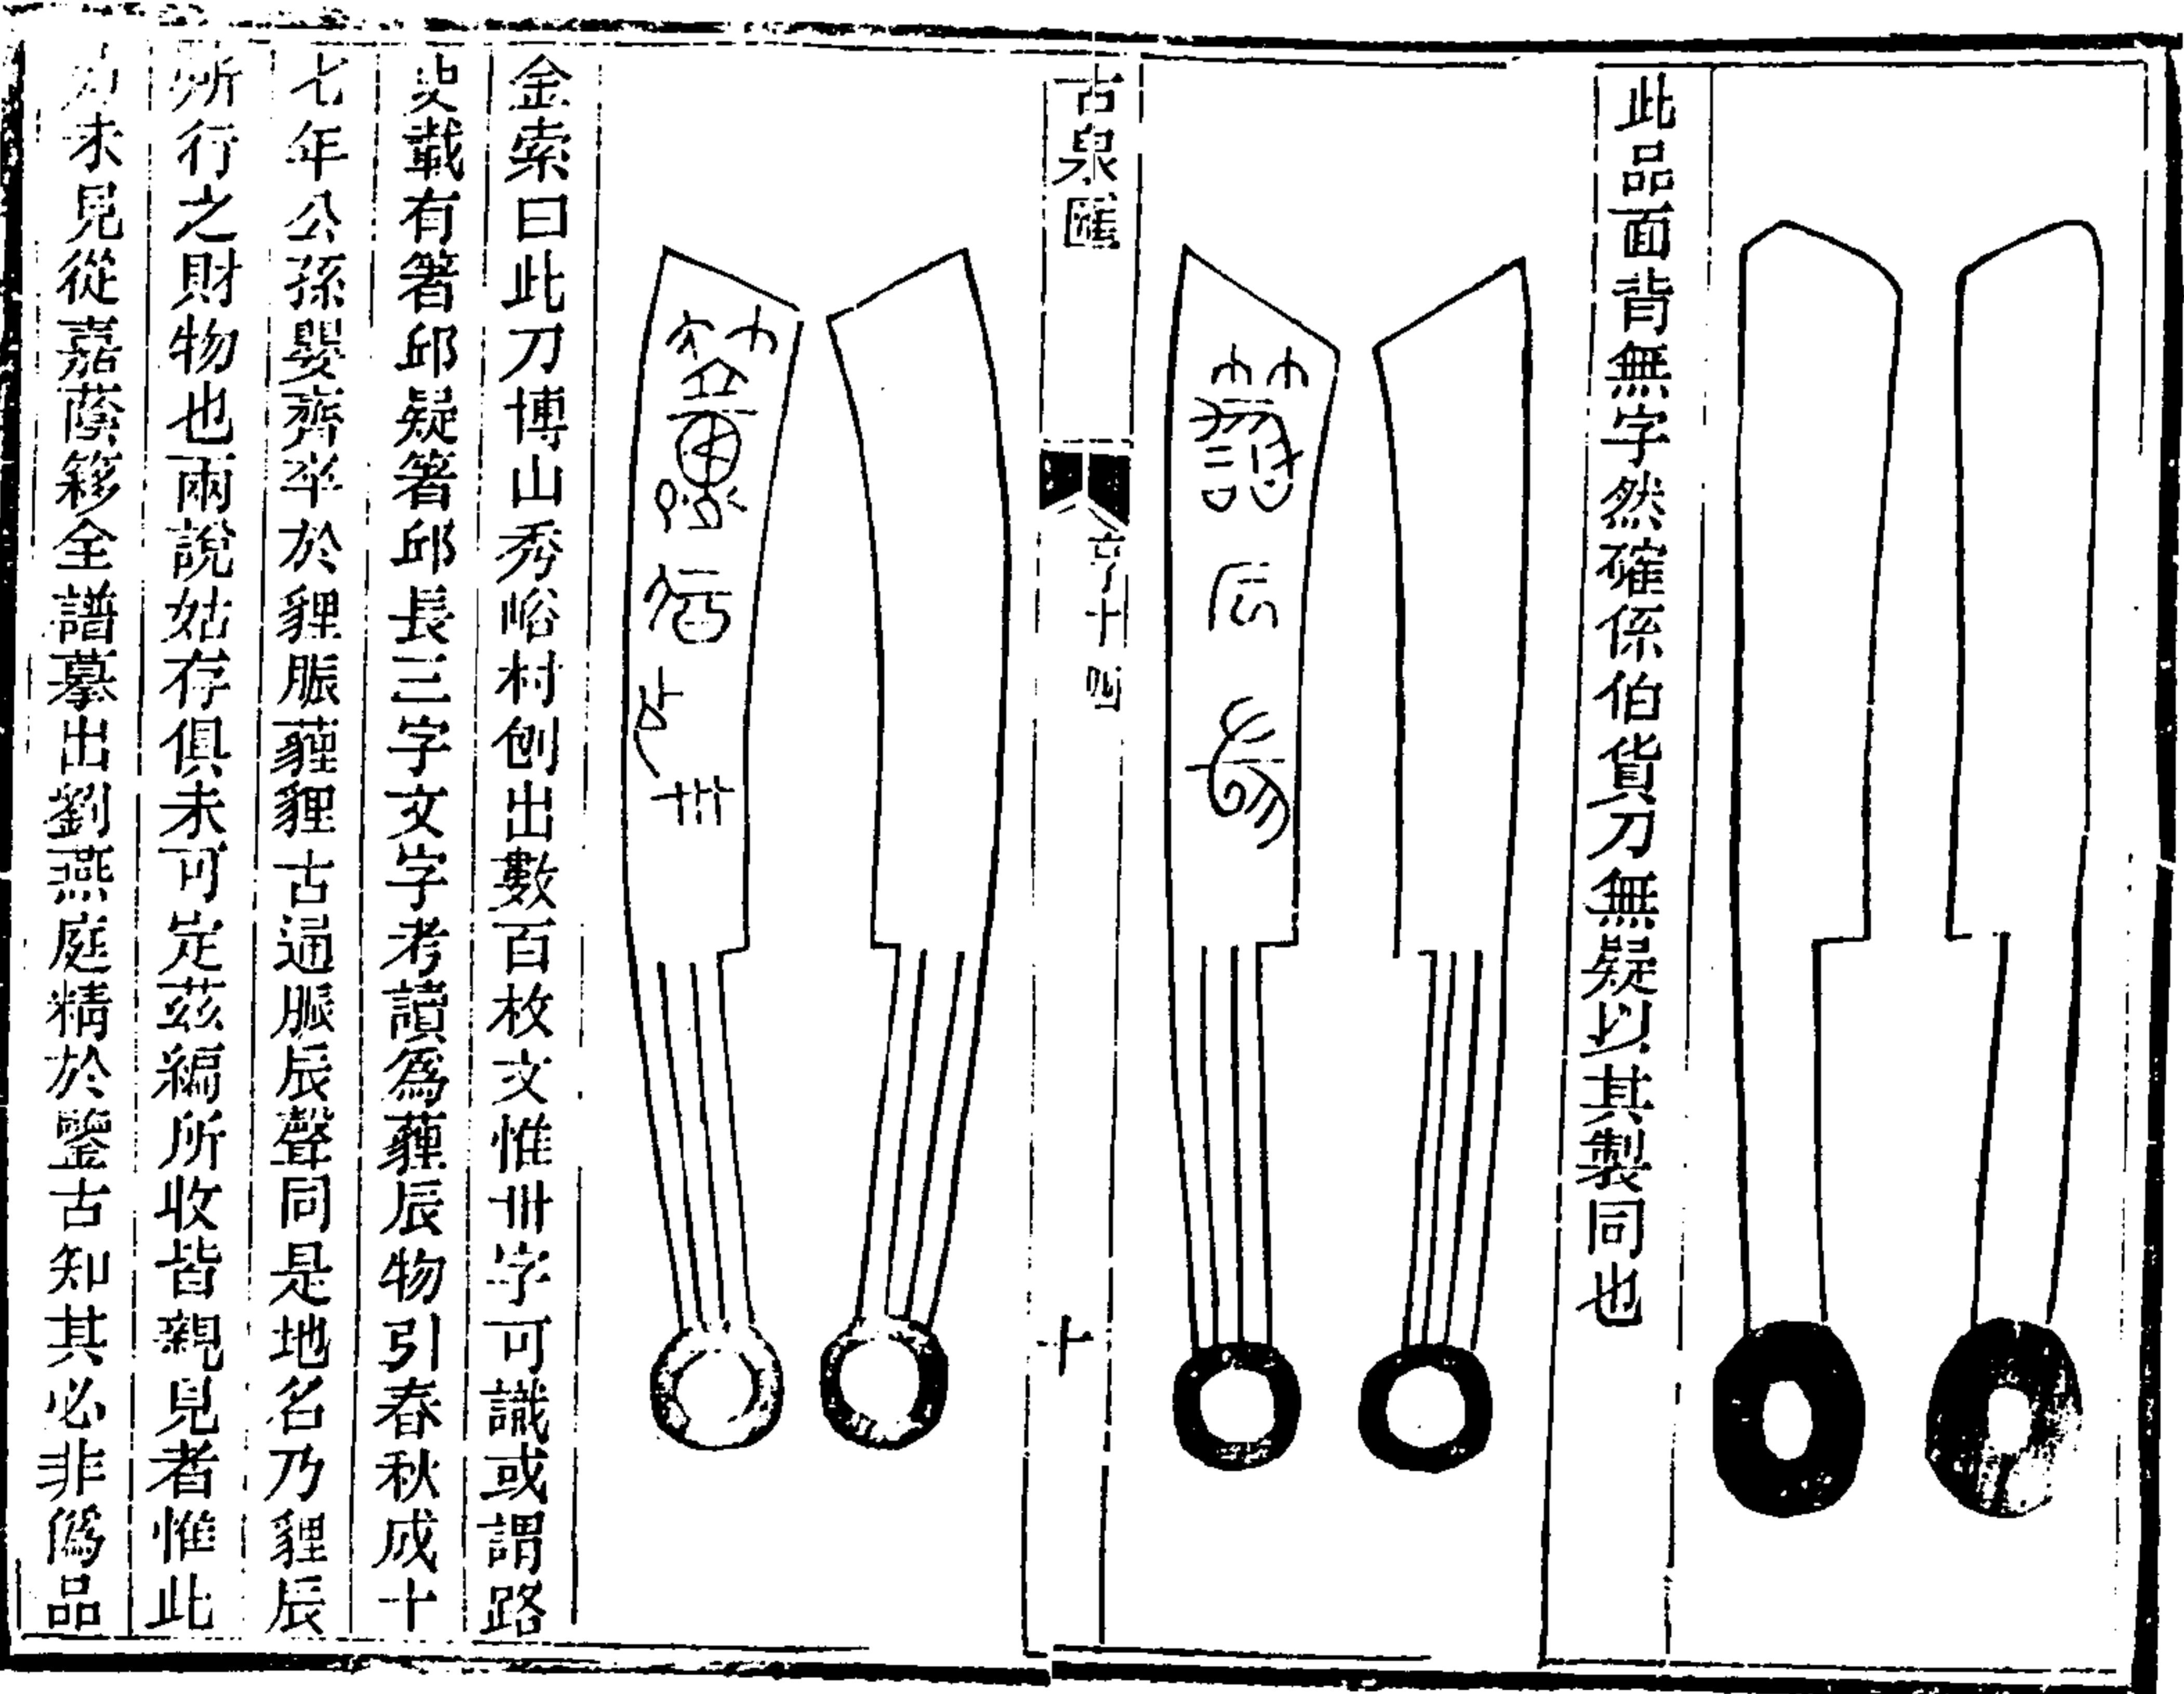 此品面背無字然確係伯貨刀無疑以其製同也
古泉匯
亨十四
十
金索曰此刀博山秀峪村刨出數百枚文惟卌字可識或謂路
史載有箸邱疑箸邱長三字文字考讀為薶辰物引春秋成十
七年公孫嬰齊卒於貍脤薶貍古通脤辰聲同是地名乃貍辰
所行之財物也兩說姑存俱未可定茲編所收皆親見者惟此
刀未見從嘉蔭簃全譜摹出劉燕庭精於鑒古知其必非偽品